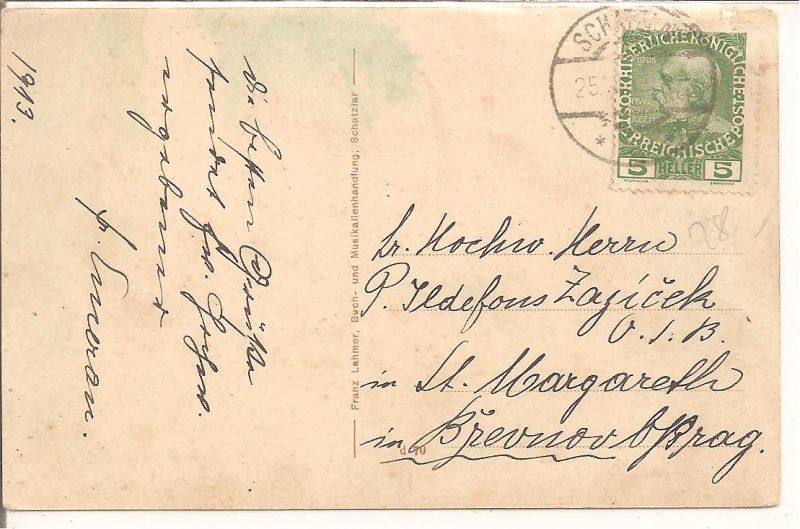 1913.
Die besten Grüße
sendet Ew. Hochw.
ergebenst
Franz Lahmer, Buch- und Musikalienhandlung, Schatzlar
d 70
SCHATZLAR
25.
K.K. KAISERLICHE KÖNIGLICHE
ÖSTERREICHISCHE POST
1908
FRANZ JOSEPH
5 HELLER 5
28
Sr. Hochw. Herrn
P. Ildefons Zazíček
O.S.B.
in St. Margareth
in Břevnov b/Prag.